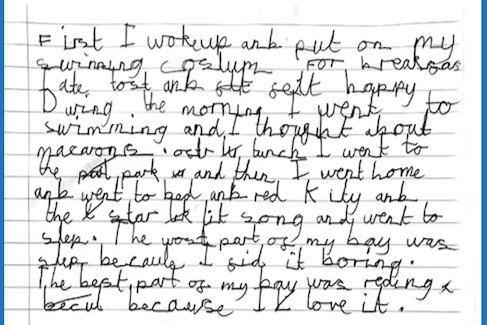 First I wokeup anb put on my
swimming costum For breakfas
I ate tost anb felt happy
During the morning I went to
swimming and I thought about
macarons. lunch I went to
the park and then I went home
anb went to bed anb red Kity anb
the star song and went to
slep. The worst part of my bay was
slep because I sid it boring.
The best part of my bay was reding
because I love it.